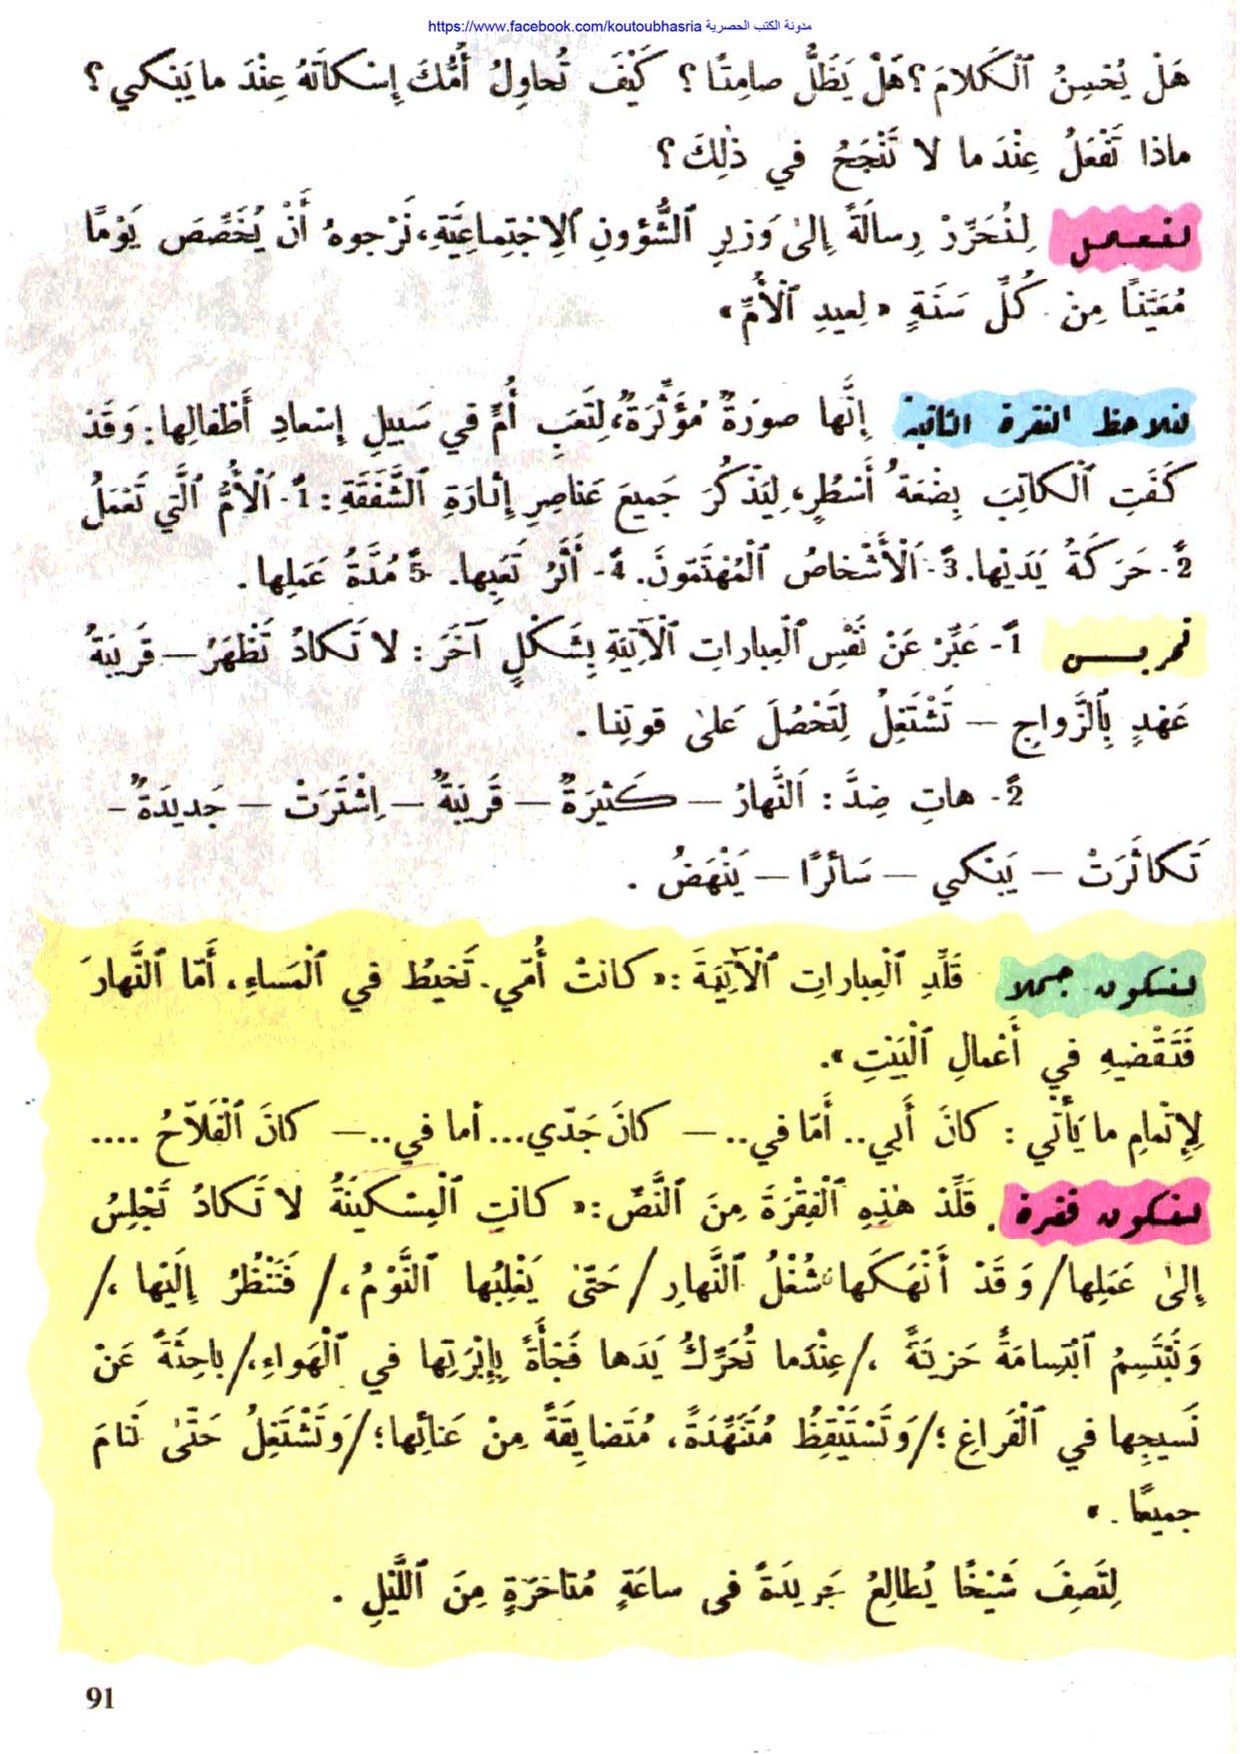 مدونة الكتب الحصرية https://www.facebook.com/koutoubhasria
هَلْ يُحْسِنُ ٱلْكَلامَ؟ هَلْ يَظَلُّ صامِتًا؟ كَيْفَ تُحاوِلُ أُمُّكَ إِسْكاتَهُ عِنْدَ ما يَبْكي؟
ماذا تَفْعَلُ عِنْدَ ما لا تَنْجَحُ في ذٰلِكَ؟
لنعمل لِنُحَرِّرْ رِسالَةً إِلىٰ وَزيرِ ٱلشُّؤونِ ٱلِاجْتِماعِيَّةِ، نَرْجوهُ أَنْ يُخَصِّصَ يَوْمًا
مُعَيَّنًا مِنْ كُلِّ سَنَةٍ « لِعيدِ ٱلْأُمِّ»
لنلاحظ الفقرة الثانية إِنَّها صورَةٌ مُؤَثِّرَةٌ، لِتَعَبِ أُمٍّ في سَبيلِ إِسْعادِ أَطْفالِها: وَقَدْ
كَفَتِ ٱلْكاتِبَ بِضْعَةُ أَسْطُرٍ، لِيَذْكُرَ جَميعَ عَناصِرِ إِثارَةِ ٱلشَّفَقَةِ: 1- ٱلْأُمُّ ٱلَّتي تَعْمَلُ
2- حَرَكَةُ يَدَيْها. 3- ٱلْأَشْخاصُ ٱلْمُهْتَمّونَ. 4- أَثَرُ تَعَبِها. 5- مُدَّةُ عَمَلِها.
تمريـن 1- عَبِّرْ عَنْ نَفْسِ ٱلْعِباراتِ ٱلْآتِيَةِ بِشَكْلٍ آخَرَ: لا تَكادُ تَظْهَرُ — قَريبَةُ
عَهْدٍ بِٱلزَّواجِ — تَشْتَغِلُ لِتَحْصُلَ عَلىٰ قوتِنا.
2- هاتِ ضِدَّ: اَلنَّهارُ — كَثيرَةٌ — قَريبَةٌ — اِشْتَرَتْ — جَديدَةٌ -
تَكاثَرَتْ — يَبْكي — سَائرًا — يَنْهَضُ.
لنكون جملا قَلِّدِ ٱلْعِباراتِ ٱلْآتِيَةَ: « كانَتْ أُمّي. تَخيطُ في ٱلْمَساءِ. أَمّا ٱلنَّهارَ
فَتَقْضيهِ في أَعْمالِ ٱلْبَيْتِ».
لِإِتْمامِ ما يَأْتي: كانَ أَبي.. أَمّا في.. — كانَ جَدّي... أما في.. — كانَ ٱلْفَلّاحُ ....
لنكون فقرة. قَلِّدْ هٰذِهِ ٱلْفِقْرَةَ مِنَ ٱلنَّصِّ: « كانَتِ ٱلْمِسْكينَةُ لا تَكادُ تَجْلِسُ
إِلىٰ عَمَلِها/ وَقَدْ أَنْهَكَها شُغْلُ ٱلنَّهارِ/ حَتّىٰ يَغْلِبُها ٱلنَّوْمُ،/ فَتَنْظُرُ إِلَيْها،/
وَتَبْتَسِمُ ٱبْتِسامَةً حَزينَةً،/ عِنْدَما تُحَرِّكُ يَدَها فَجْأَةً بِإِبْرَتِها في ٱلْهَواءِ،/ باحِثَةً عَنْ
نَسيجِها في ٱلْفَراغِ؛/ وَتَسْتَيْقِظُ مُتَنَهِّدَةً، مُتَضايِقَةً مِنْ عَنائِها؛/ وَتَشْتَغِلُ حَتّىٰ نَنامَ
جميعًا. »
لِنَصِفَ شَيْخًا يُطالِعُ جَريدَةً في ساعَةٍ مُتَأَخِّرَةٍ مِنَ ٱللَّيْلِ.
91